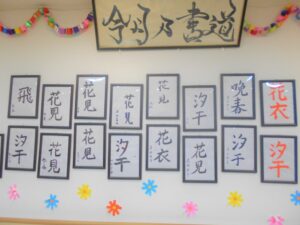 今月乃書道
飛 花見 花見 花見 花見 汐干 晩春 花衣
汐干 花見 花見 汐干 花衣 花見 汐干 汐干